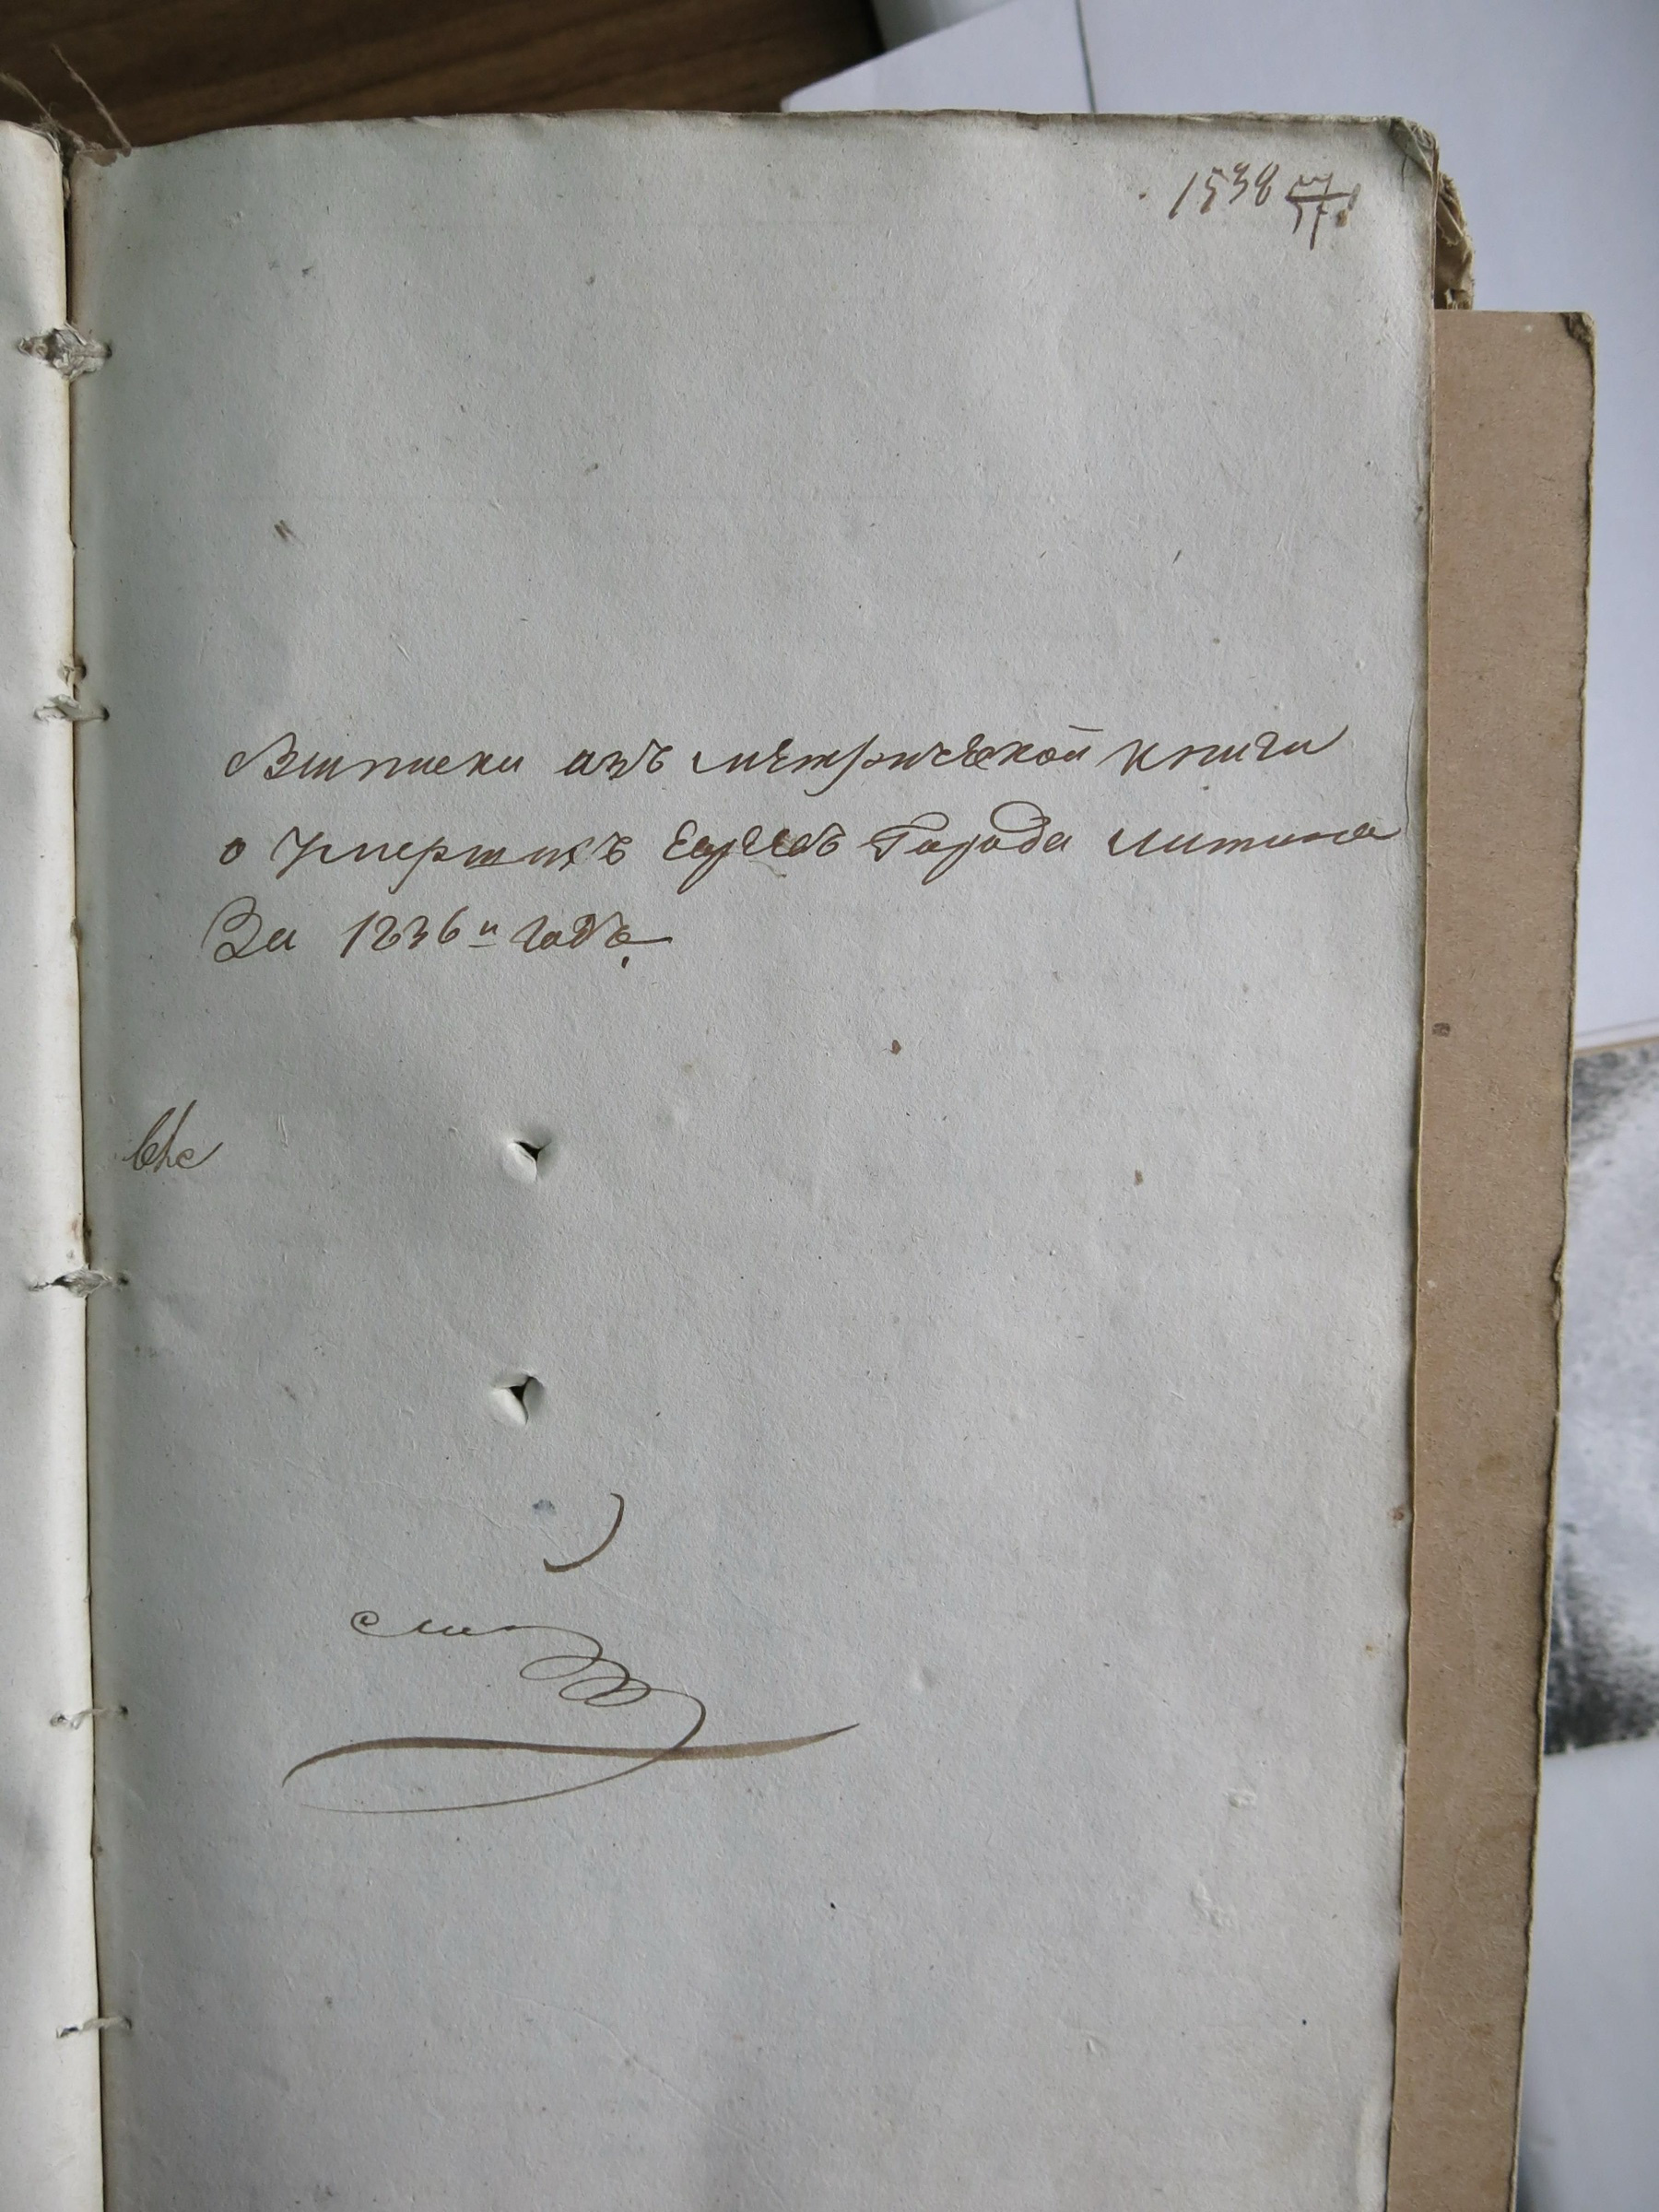 1538
Выписки изъ метрической книги
о Умершихъ Евреевъ Города Литина
За 1836 й годъ.